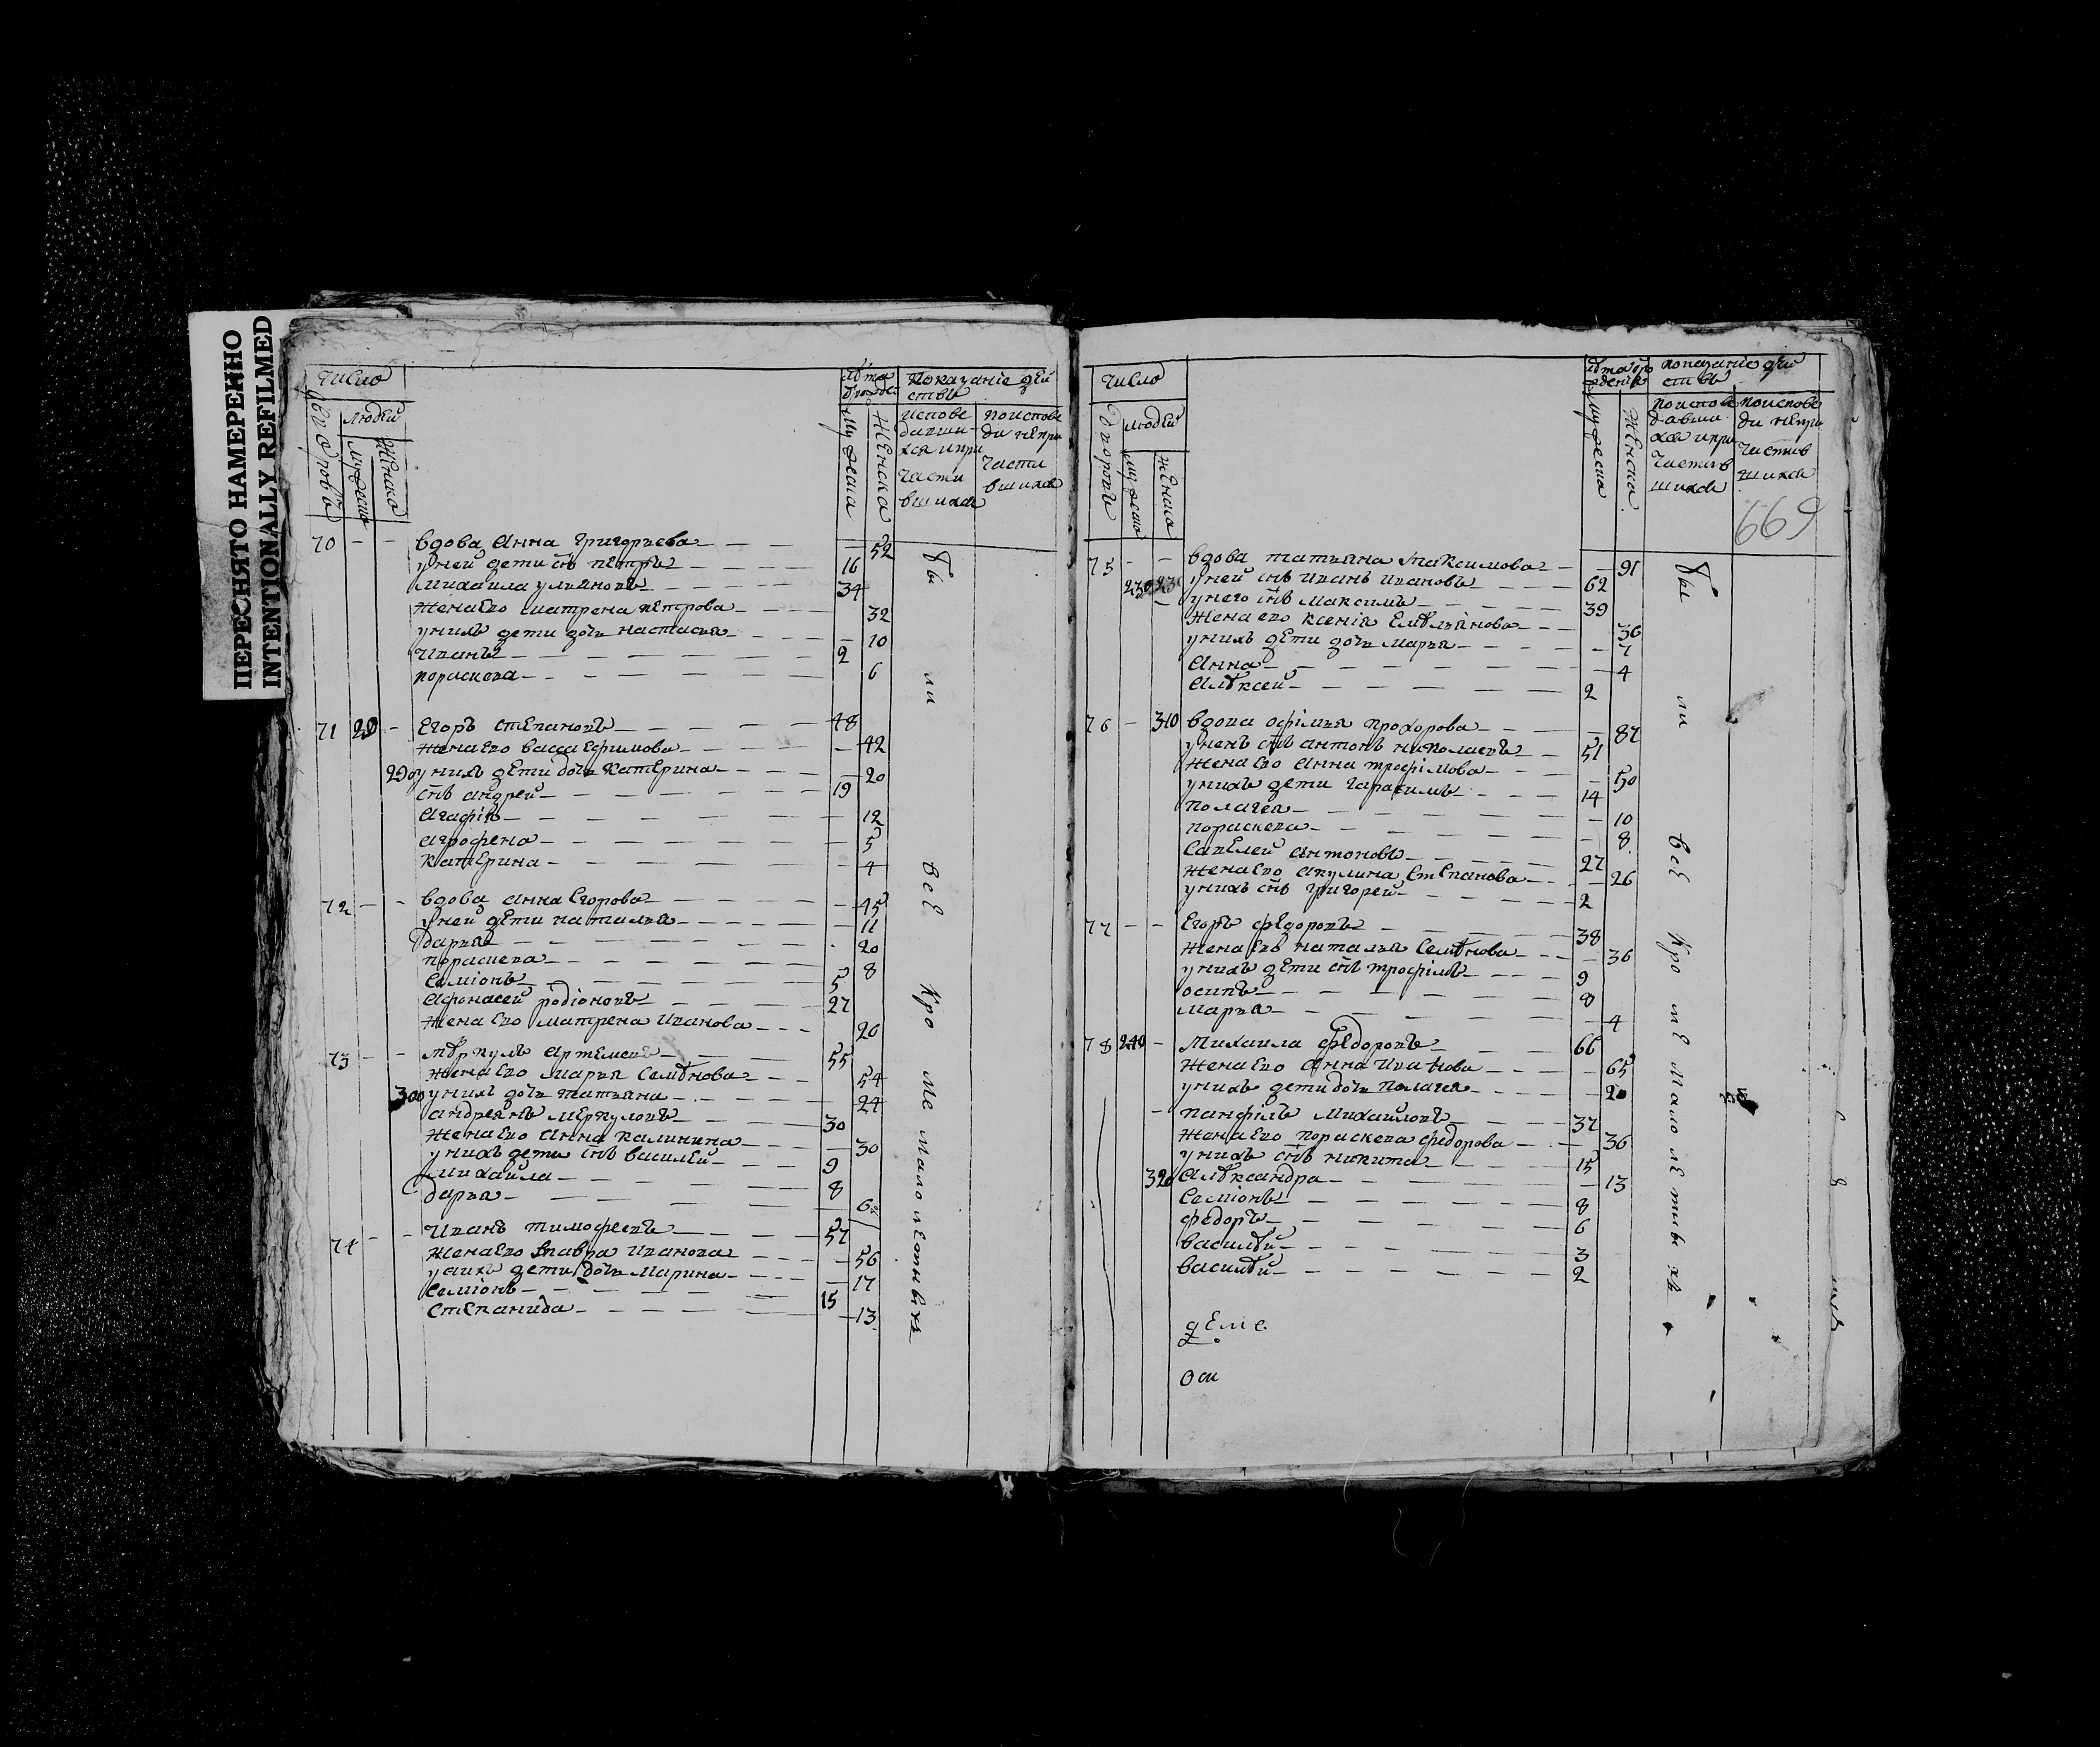 ПЕРЕСНЯТО НАМЕРЕННО
INTENTIONALLY REFILMED
число
людей
лѣта
Показание дей
ствъ
испове
давши
хся и при
части
вшихся
поиспове
ди непри
части
вшихся
женска
70 - - вдова анна григорьева - 52
у ней дети сн̃ъ петръ - 16
михаила ульяновъ - 34
жена ево матрена петрова - 32
у нихъ дети дочь настасья - 10
иванъ - 2
пораскева - 6
71 - егоръ степановъ - 48
жена ево васса ефимова - 42
290 у нихъ дети дочь катерина - 20
сн̃ъ андрей - 19
агафія - 12
агрофена - 5
катерина - 4
72 - - вдова анна егорова - 45
у ней дети наталья - 11
дарья - 20
пораскева - 8
семіонъ - 5
афонасей родіоновъ - 27
жена ево матрена иванова - 26
73 - - мѣркулъ артемевъ - 55
жена ево марья семѣнова - 54
300 у нихъ дочь татьяна - 24
андреянъ меркуловъ - 30
жена ево анна калинина - 30
у нихъ дети сн̃ъ василей - 9
михайла - 8
дарья - 6
74 - - иванъ тимофеевъ - 57
жена ево иванова - 56
у нихъ дети дочь марина - 17
семіонъ - 15
степанида - 13
бы ли всѣ кро ме малолетныхъ
число
людей
показание дей
ствъ
поиспове
давши
хся и при
частив
шихся
поиспове
ди непри
частив
шихся
женска
669
75 - - вдова татьяна максимова - 91
230 у ней сн̃ъ иванъ ивановъ - 62
у него сн̃ъ максимъ - 39
жена ево ксенія емѣльянова - 36
у нихъ дети дочь марья - 7
анна - 4
алѣксей - 2
76 - 310 вдова офімья прохорова - 87
у ней сн̃ъ антонъ николаевъ - 51
жена ево анна трофімова - 50
у нихъ дети гарасимъ - 14
полагея - 10
пораскева - 8
савелей антоновъ - 27
жена ево акулина степанова - 26
у нихъ сн̃ъ григорей - 2
77 - - егоръ федоровъ - 38
жена ево наталья семѣнова - 36
у нихъ дети сн̃ъ трофімъ - 9
осипъ - 8
марья - 4
78 240 - михаила федоровъ - 66
жена ево анна иванова - 65
у нихъ дети дочь полагея - 20
- панфілъ михаиловъ - 37
жена ево пораскева федорова - 36
у нихъ сн̃ъ никита - 15
320 алѣксандра - 13
семіонъ - 8
федоръ - 6
василѣй - 3
василѣй - 2
бы ли всѣ кро мѣ мало летныхъ